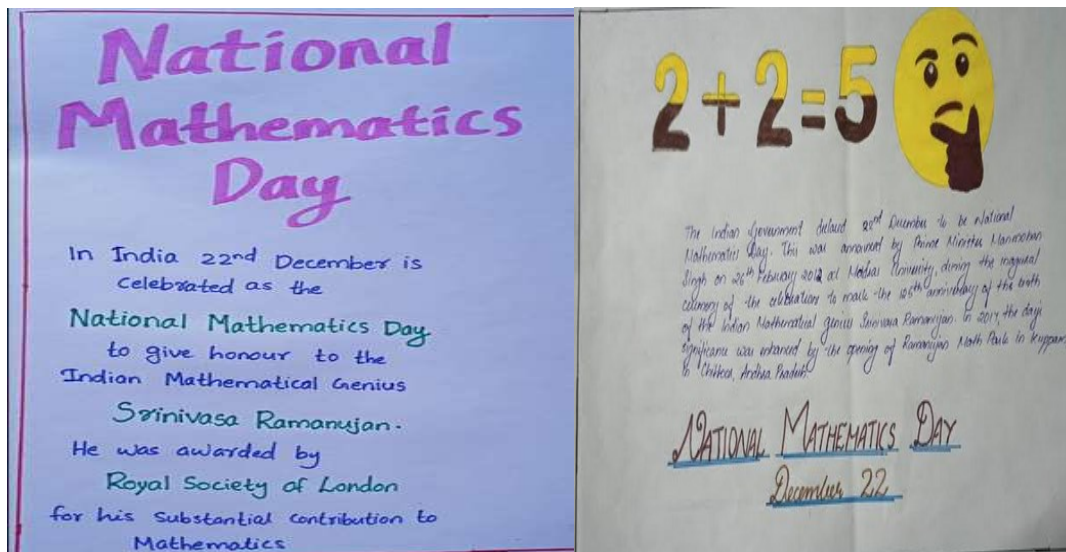 National
Mathematics
Day
In India 22nd December is
celebrated as the
National Mathematics Day
to give honour to the
Indian Mathematical Genius
Srinivasa Ramanujan.
He was awarded by
Royal Society of London
for his substantial contribution to
Mathematics
2+2=5
The Indian Government 22nd December to be National
Mathematics Day. This was announced by Prime Minister Manmohan
Singh on 26th February 2012 at Madras University, during the inaugural
ceremony of the celebration to mark the 125th anniversary of the birth
of the Indian Mathematical genius Srinivasa Ramanujan. In 2017, the day's
significance was enhanced by the opening of Ramanujan Math Park in Kuppam
in Chittoor, Andhra Pradesh.
NATIONAL MATHEMATICS DAY
December 22